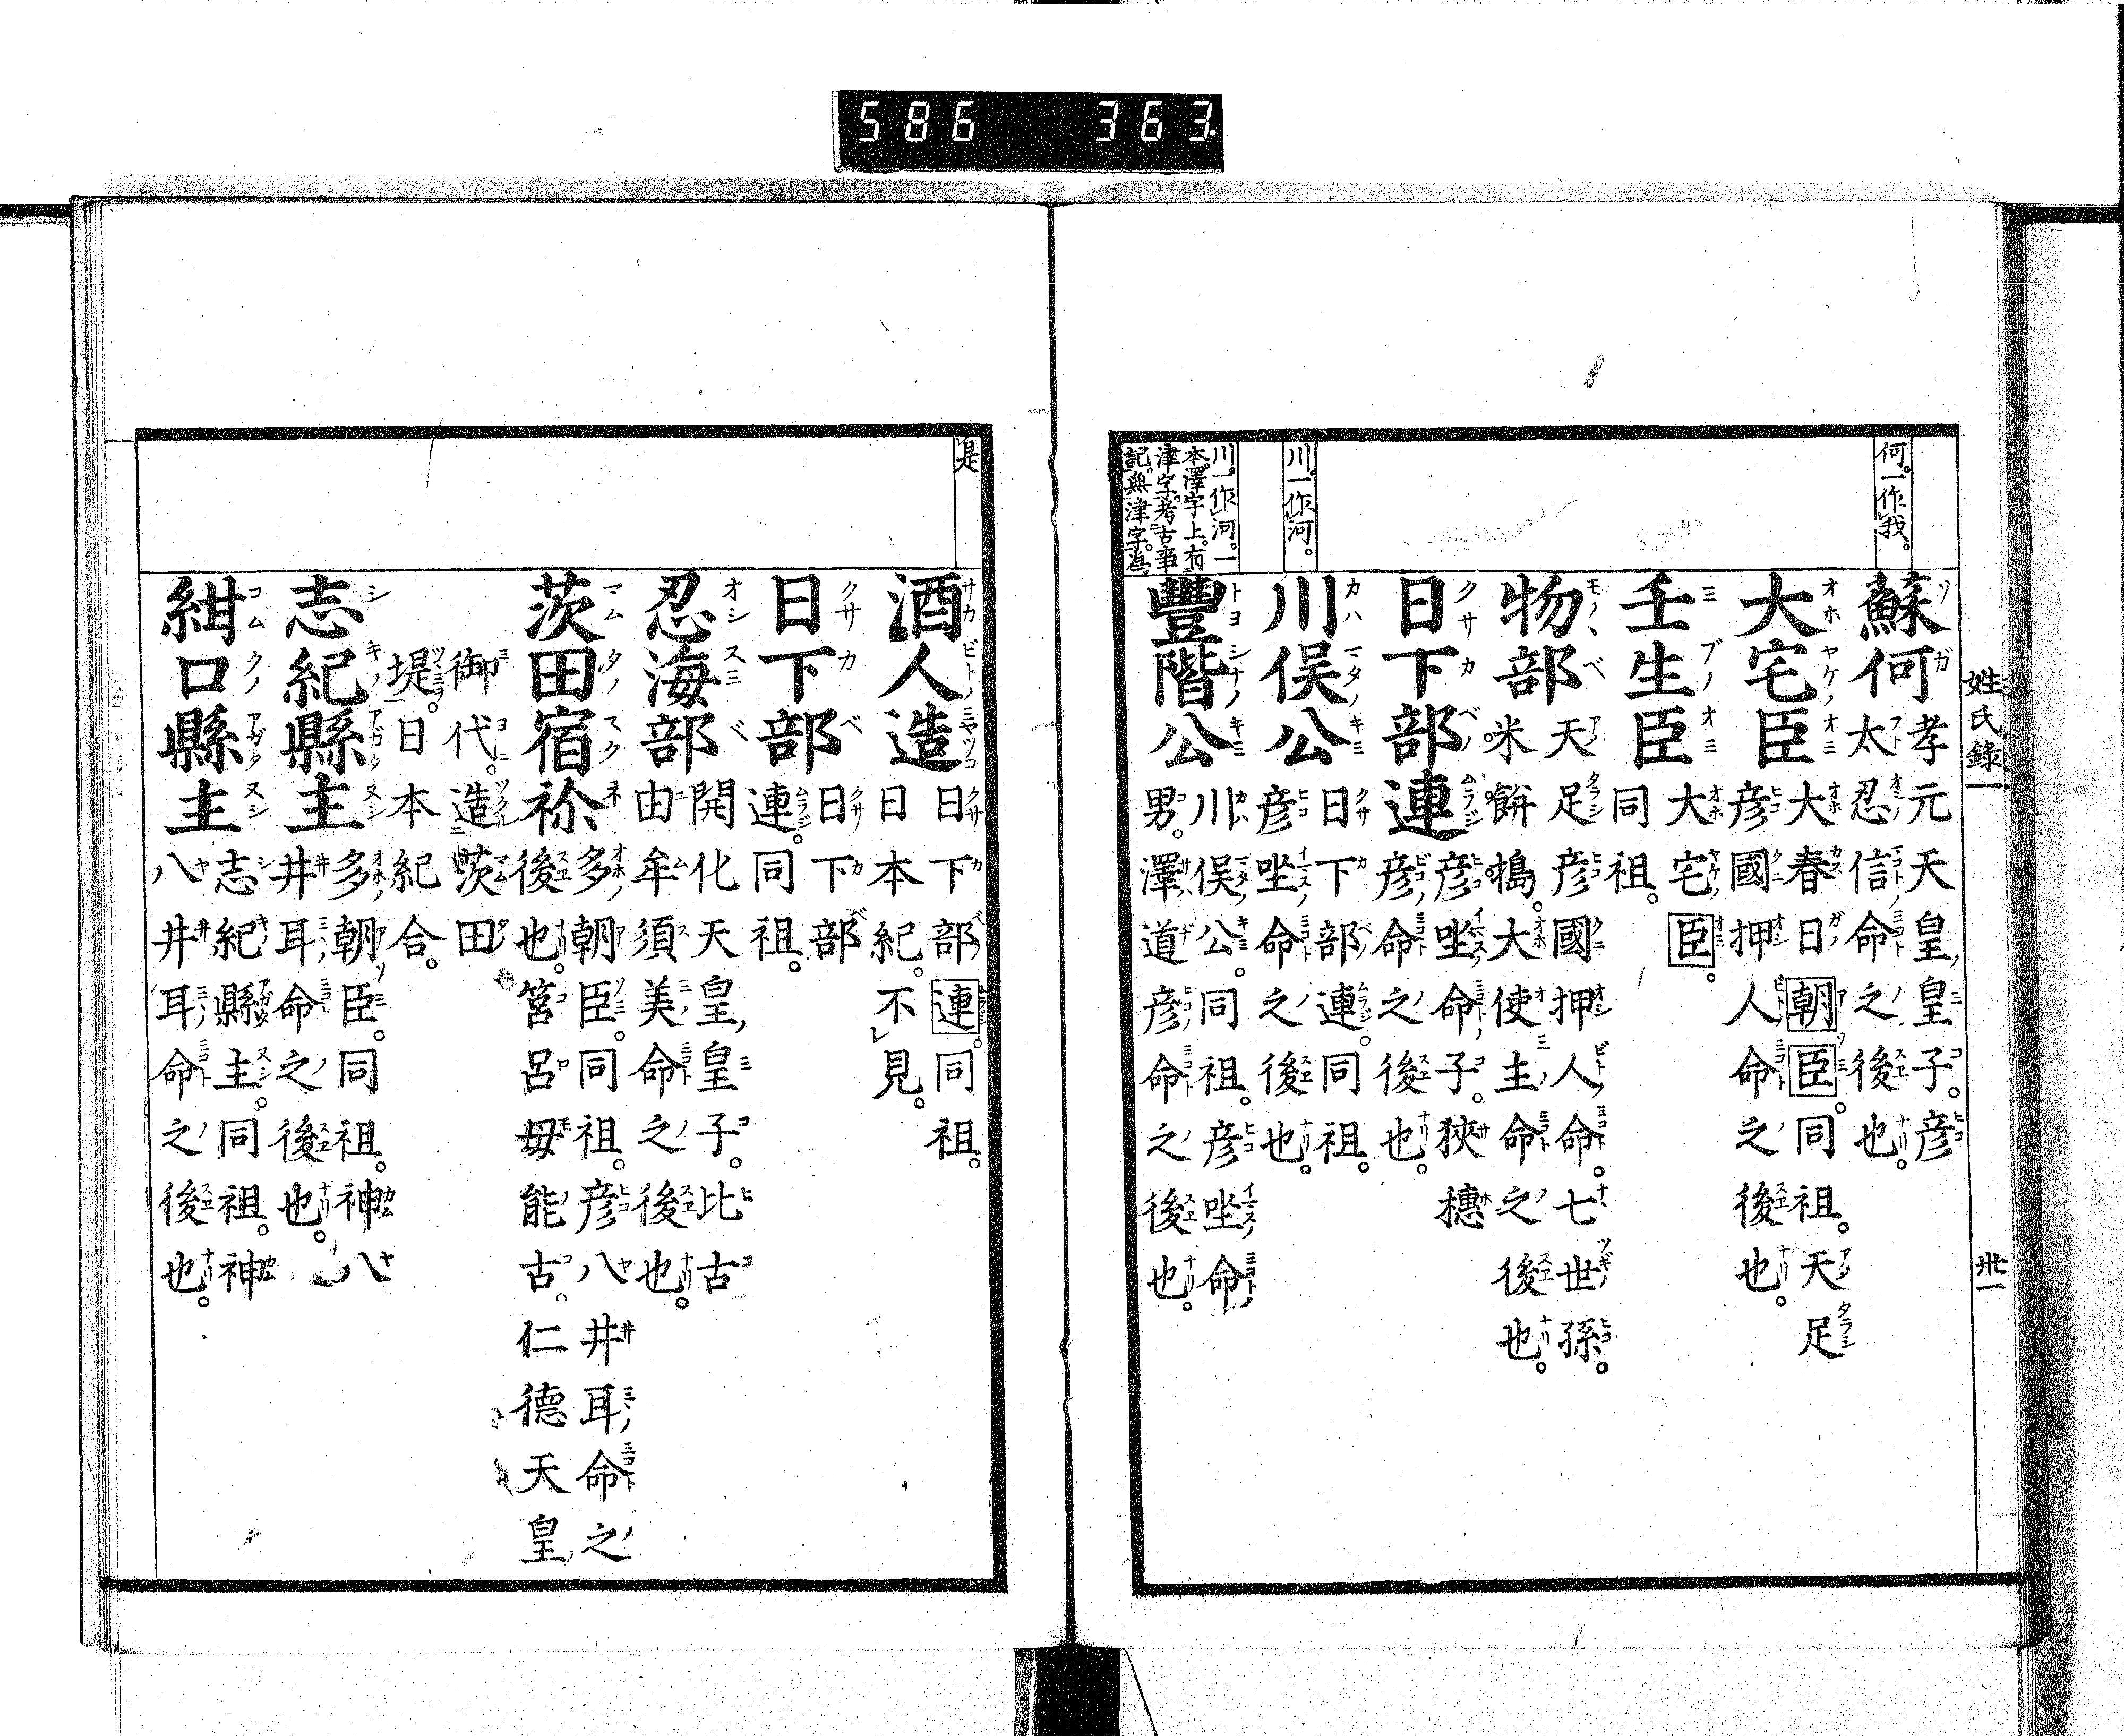 586 363
姓氏錄一
卅一
何。一作我。
蘇何
孝元天皇皇子。彦
太忍信命之後也。
大宅臣
大春日朝臣。同祖。天足
彦國押人命之後也。
壬生臣
大宅臣。
同祖。
物部
天足彦國押人命。七世孫。
米餅搗。大使主命之後也。
日下部連
彦坐命子。狹穗
彦命之後也。
川。一作河。
川俣公
日下部連。同祖。
彦坐命之後也。
川。一作河。一
本。澤字上。有
津字。考古事
記。無津字。為
豐階公
川俣公。同祖。彦坐命
男。澤道彦命之後也。
是
酒人造
日下部連。同祖。
日本紀。不見。
日下部
日下部
連。同祖。
忍海部
開化天皇皇子。比古
由牟須美命之後也。
茨田宿祢
多朝臣。同祖。彦八井耳命之
後也。筥呂毋能古。仁德天皇
御代。造茨田
堤。日本紀合。
志紀縣主
多朝臣。同祖。神八
井耳命之後也。
紺口縣主
志紀縣主。同祖。神
八井耳命之後也。